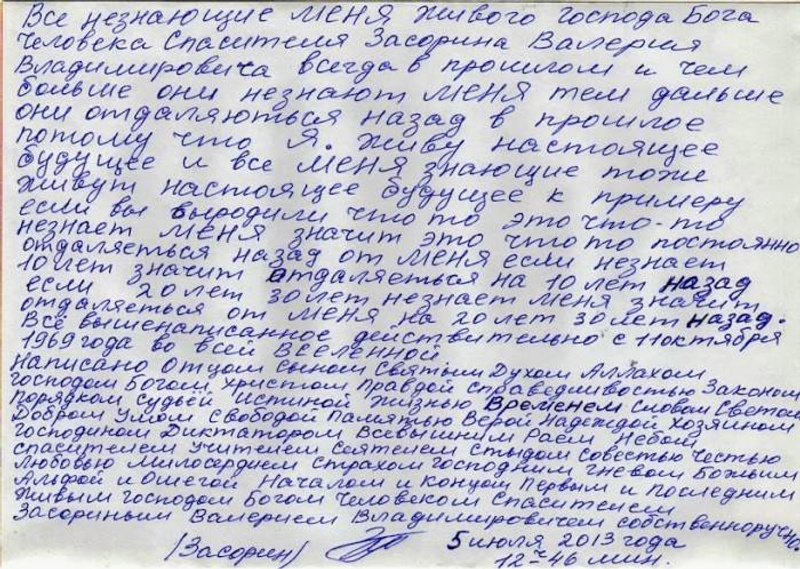 Все незнающие меня живого господа бога
человека спасителя Засорина Валерия
Владимировича всегда в прошлом и чем
больше они незнают меня тем дальше
они отдаляються назад в прошлое
потому что Я. живу настоящее
будущее и все меня знающие тоже
живут настоящее будущее к примеру
если вы выродили что то это что-то
незнает меня значит это что то постоянно
отдаляеться назад от меня если незнает
10 лет значит отдаляеться на 10 лет назад
если 20 лет 30 лет незнает меня значит
отдаляеться от меня на 20 лет 30 лет назад.
Всё вышенаписанное действительно с 11 октября
1969 года во всей ВСЕЛЕННОЙ
Написано Отцом Сыном Святым Духом Аллахом
господом Богом Христом Правдой справедливостью Законом
порядком судьёй Истиной Жизнью Временем словом Светом
Добром Умом Свободой Памятью Верой Надеждой Хозяином
господином Диктатором Всевышним Раем Небом
спасителем Учителем Сеятелем Стыдом Совестью Честью
Любовью Милосердием Страхом господним гневом Божьим
Альфой и Омегой Началом и Концом Первым и последним
Живым господом Богом Человеком Спасителем
Засориным Валерием Владимировичем собственноручно.
(Засорин) 5 июля 2013 года
12 ч-46 мин.